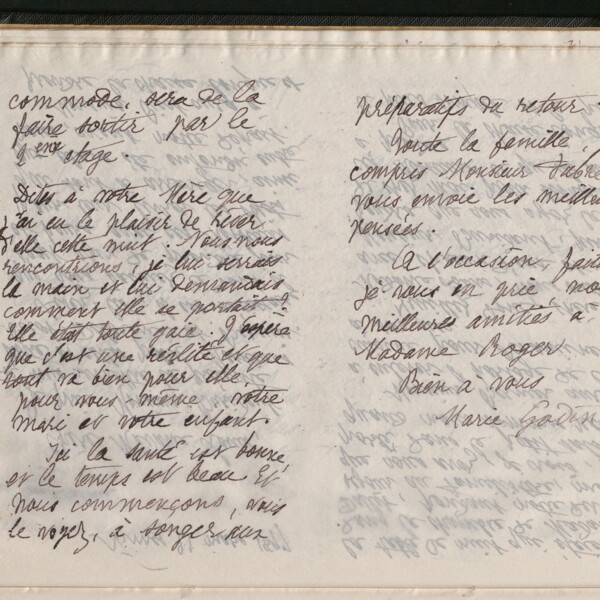 commode, sera de la
faire sortir par le
1er étage.
Dites à votre Mère que
j'ai eu le plaisir de rêver
d'elle cette nuit. Nous nous
rencontrions, je lui serrais
la main et lui demandais
comment elle se portait?
Elle était toute gaie. J'espère
que c'est une réalité et que
tout va bien pour elle,
pour vous-même, votre
mari et votre enfant.
Ici la santé est bonne
et le temps est beau. Et
nous commençons, vous
le voyez, à songer aux
préparatifs du retour.
Toute la famille,
compris Monsieur Fabre
vous envoie les meilleu
pensées.
A l'occasion, faite
je vous en prie no
meilleures amitiés à
Madame Roger
Bien à vous
Marie Godin